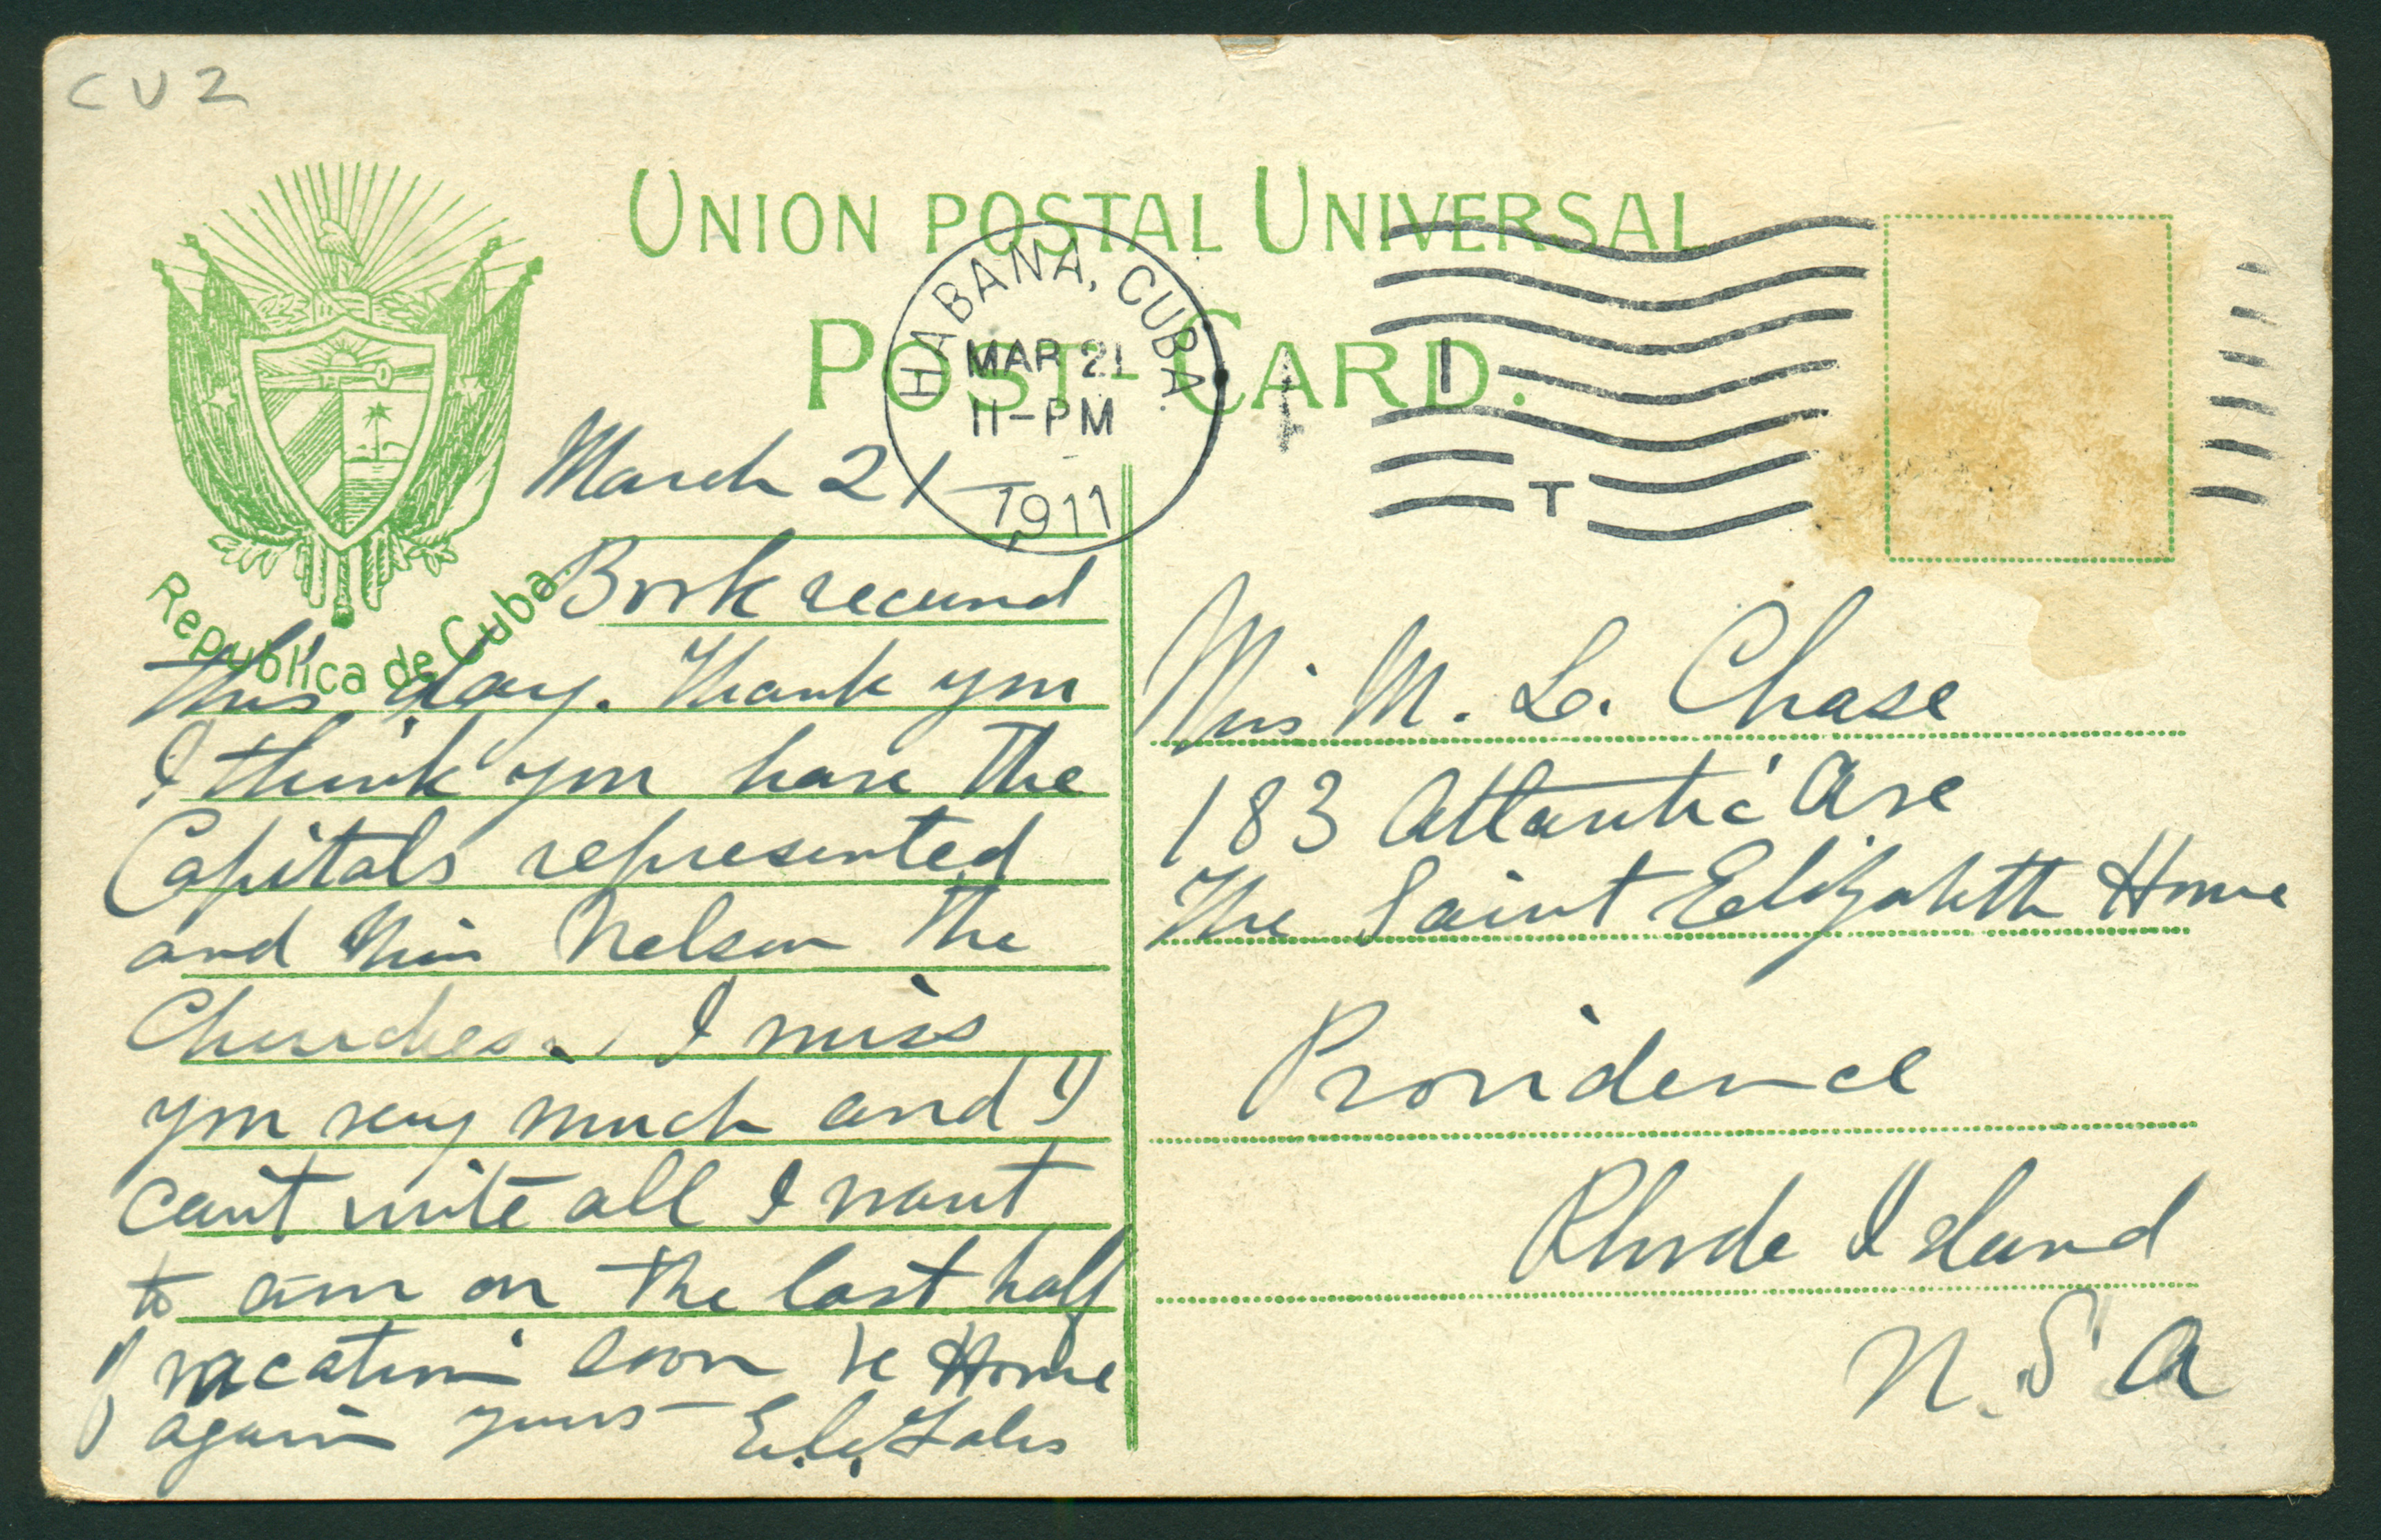 CU2
UNION POSTAL UNIVERSAL
POST-CARD.
Republica de Cuba.
HABANA, CUBA.
MAR 21
11-PM
1911
1
T
March 21
Book received
this day. Thank you
I think you have the
Capitals represented
and Miss Nelson the
Churches. I miss
you very much and I
can't write all I want
to am on the last half
of vacation soon be Home
again yours E.L.
Miss M. L. Chase
183 Atlantic Ave
The Saint Elizabeth Home
Providence
Rhode Island
U.S A